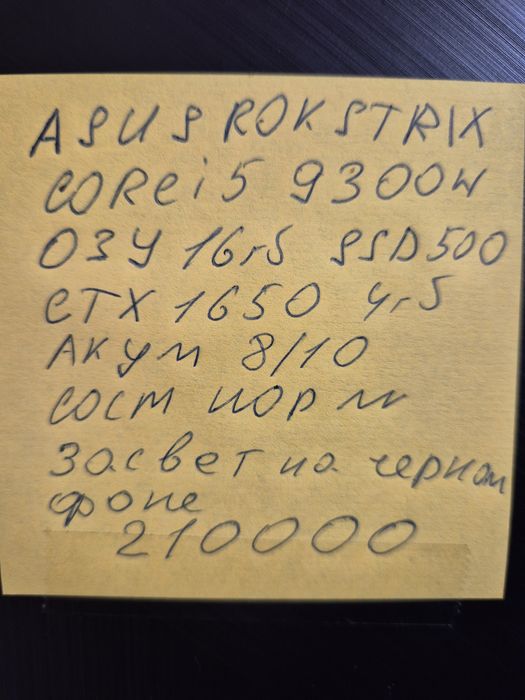 ASUS ROK STRIX
CORe i5 9300H
ОЗУ 16гб SSD500
GTX 1650 4гб
АКУМ 8/10
сост норм
Засвет на черном
фоне
210000